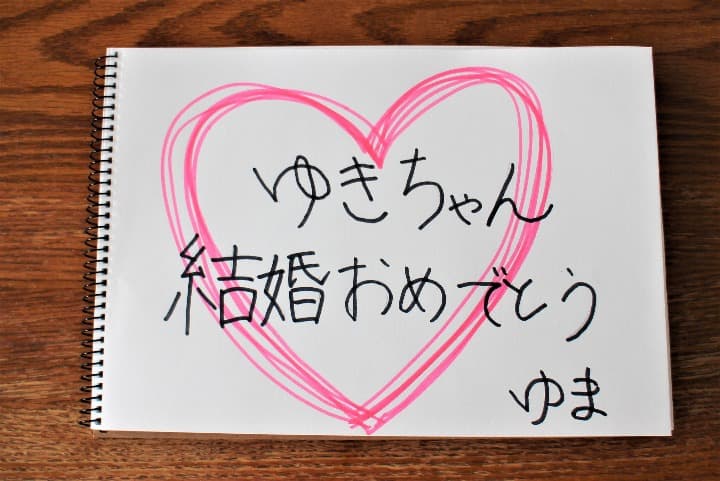 ゆきちゃん
結婚おめでとう
ゆま